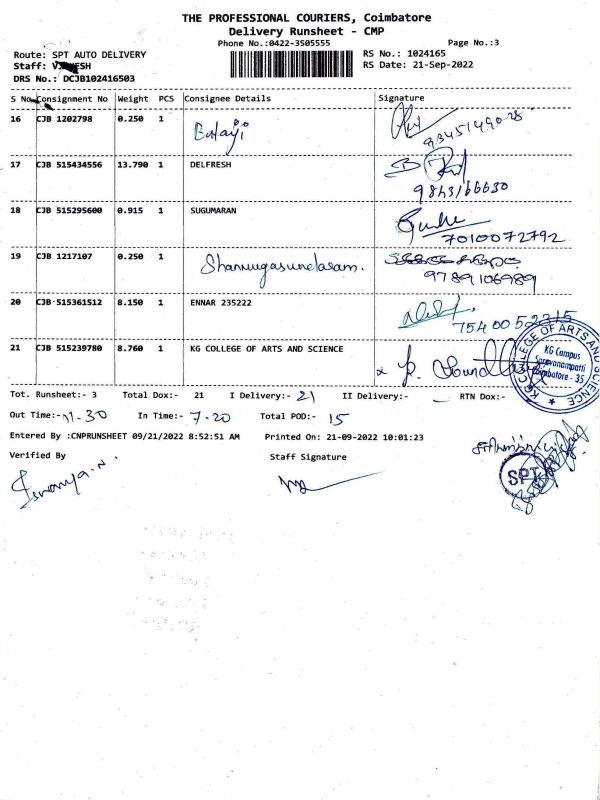 THE PROFESSIONAL COURIERS, Coimbatore
Delivery Runsheet - CMP
Phone No.:0422-3505555
Page No.:3
Route: SPT AUTO DELIVERY
RS No.: 1024165
Staff:
RS Date: 21-Sep-2022
DRS No.: DCJB102416503
S No Consignment No Weight PCS Consignee Details Signature
16 CJB 1202798 0.250 1 Balaji
17 CJB 515434556 13.790 1 DELFRESH
9843166630
18 CJB 515295600 0.915 1 SUGUMARAN
7010072792
19 CJB 1217107 0.250 1 Shanmugasundaram.
9789106989
20 CJB 515361512 8.150 1 ENNAR 235222
21 CJB 515239780 8.760 1 KG COLLEGE OF ARTS AND SCIENCE
KG COLLEGE OF ARTS AND SCIENCE
KG Campus
Saravanampatti
Coimbatore - 35
Tot. Runsheet:- 3 Total Dox:- 21 I Delivery:- 21 II Delivery:- RTN Dox:-
Out Time:- 11.30 In Time:- 7-20 Total POD:- 15
Entered By :CNPRUNSHEET 09/21/2022 8:52:51 AM Printed On: 21-09-2022 10:01:23
Verified By Staff Signature
SPT